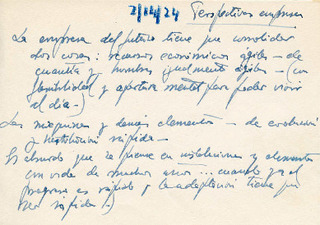 2/14/24 Perspectivas empresa
La empresa del futuro tiene que consolidar
dos cosas: recursos económicos ágiles - de
cuantía y hombres igualmente ágiles - (con
flexibilidad y apertura mental para poder vivir
al día -)
Las máquinas y demás elementos - de evolución
y sustitución rápida -
Es absurdo que se piense en instalaciones y elementos
con vida de muchos años ... cuando ya el
progreso es rápido y la adaptación tiene que
ser rápida -)